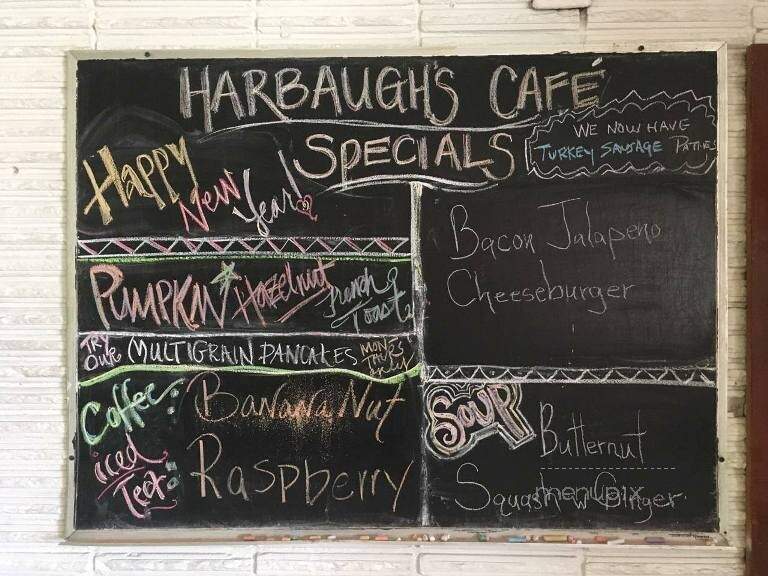 HARBAUGH'S CAFÉ
SPECIALS
WE NOW HAVE
TURKEY SAUSAGE PATTIES
Happy
New Year!
PUMPKIN Hazelnut French
Toast
TRY
OUR
MULTIGRAIN PANCAKES
MON
THURS
Coffee:
Banana Nut
iced
Tea:
Raspberry
Bacon Jalapeno
Cheeseburger
SOUP
Butternut
Squash w Ginger
menupix